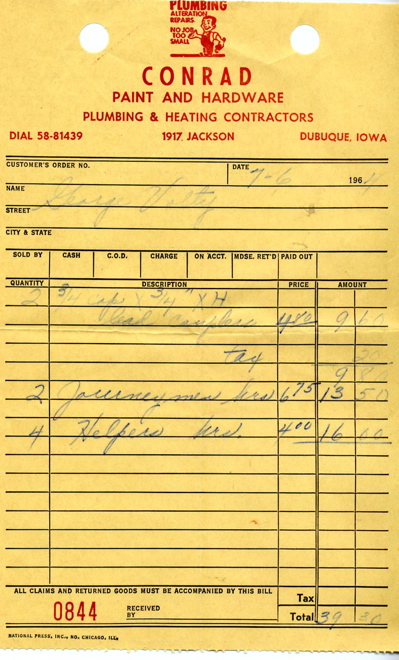 PLUMBING
ALTERATION
REPAIRS
NO JOB
TOO
SMALL
CONRAD
PAINT AND HARDWARE
PLUMBING & HEATING CONTRACTORS
DIAL 58-81439 1917 JACKSON DUBUQUE, IOWA
CUSTOMER'S ORDER NO. DATE 7-6 1964
NAME George
STREET
CITY & STATE
SOLD BY CASH C.O.D. CHARGE ON ACCT. MDSE. RET'D PAID OUT
QUANTITY DESCRIPTION PRICE AMOUNT
2 3/4 X 3/4" X H
lead 4 80 9 60
tax 20
9 80
2 Journeymen hrs 6 75 13 50
4 Helpers hrs. 4 00 16 00
ALL CLAIMS AND RETURNED GOODS MUST BE ACCOMPANIED BY THIS BILL
Tax
0844 RECEIVED BY
Total 39 30
NATIONAL PRESS, INC., NO. CHICAGO, ILL.